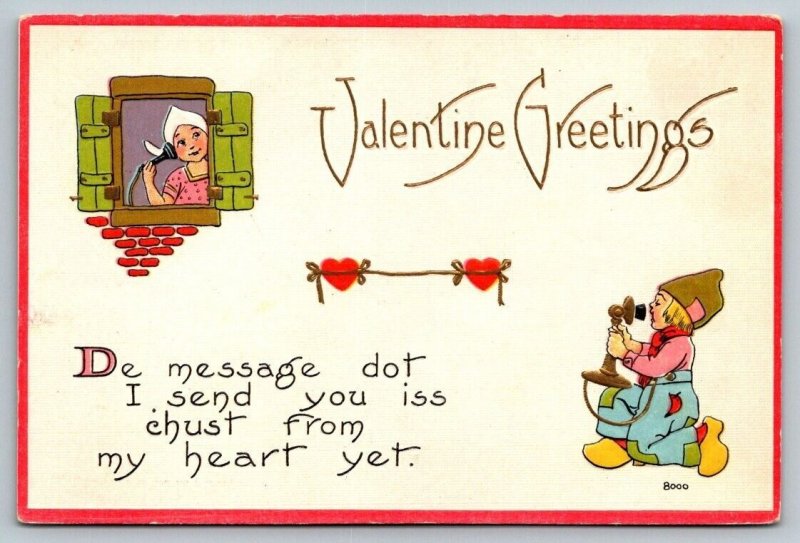 Valentine Greetings
De message dot
I send you iss
chust from
my heart yet.
8000